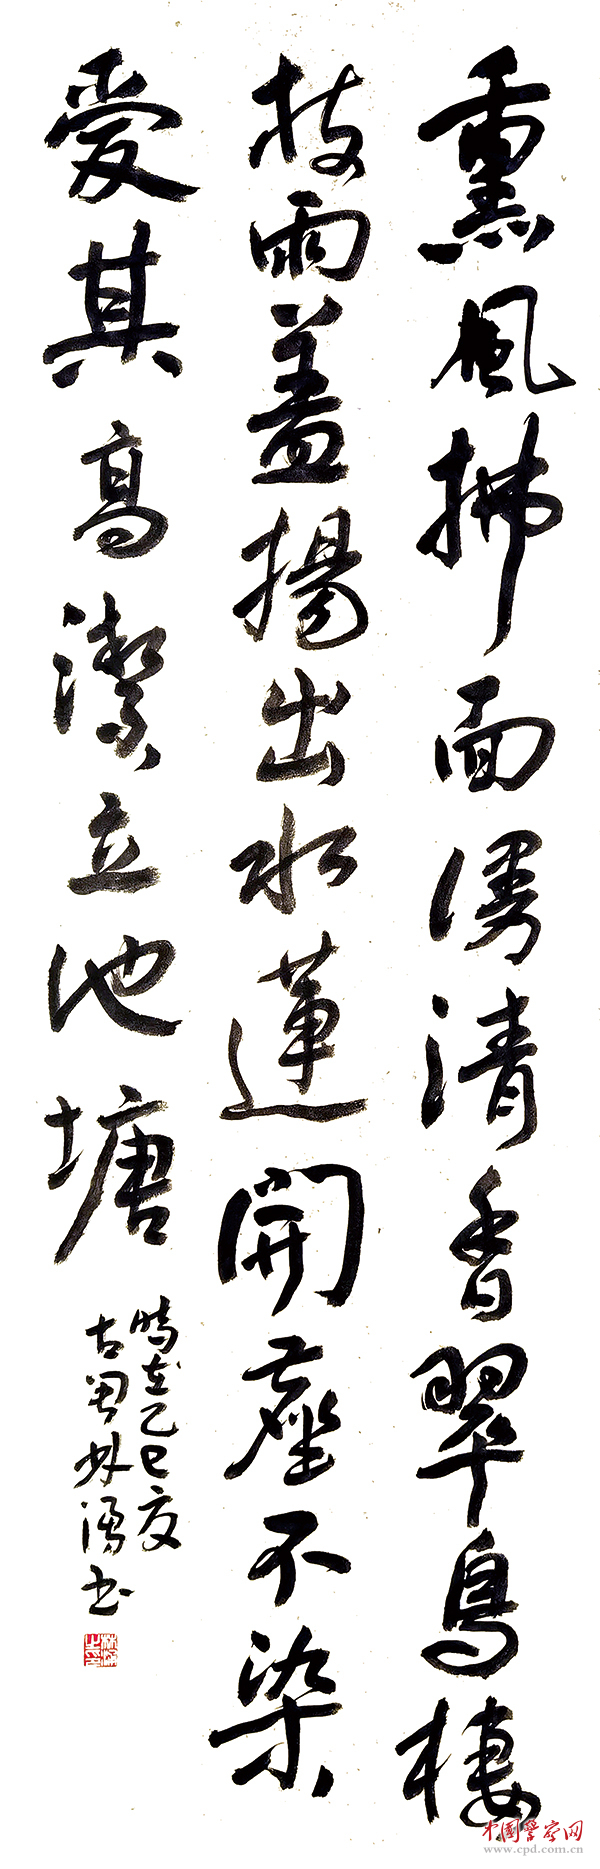 熏風拂面漫清香翠鳥棲
枝雨蓋揚出水蓮開塵不染
愛其高潔立池塘
時在乙巳夏
古粤林湧书
中国警察网
www.cpd.com.cn